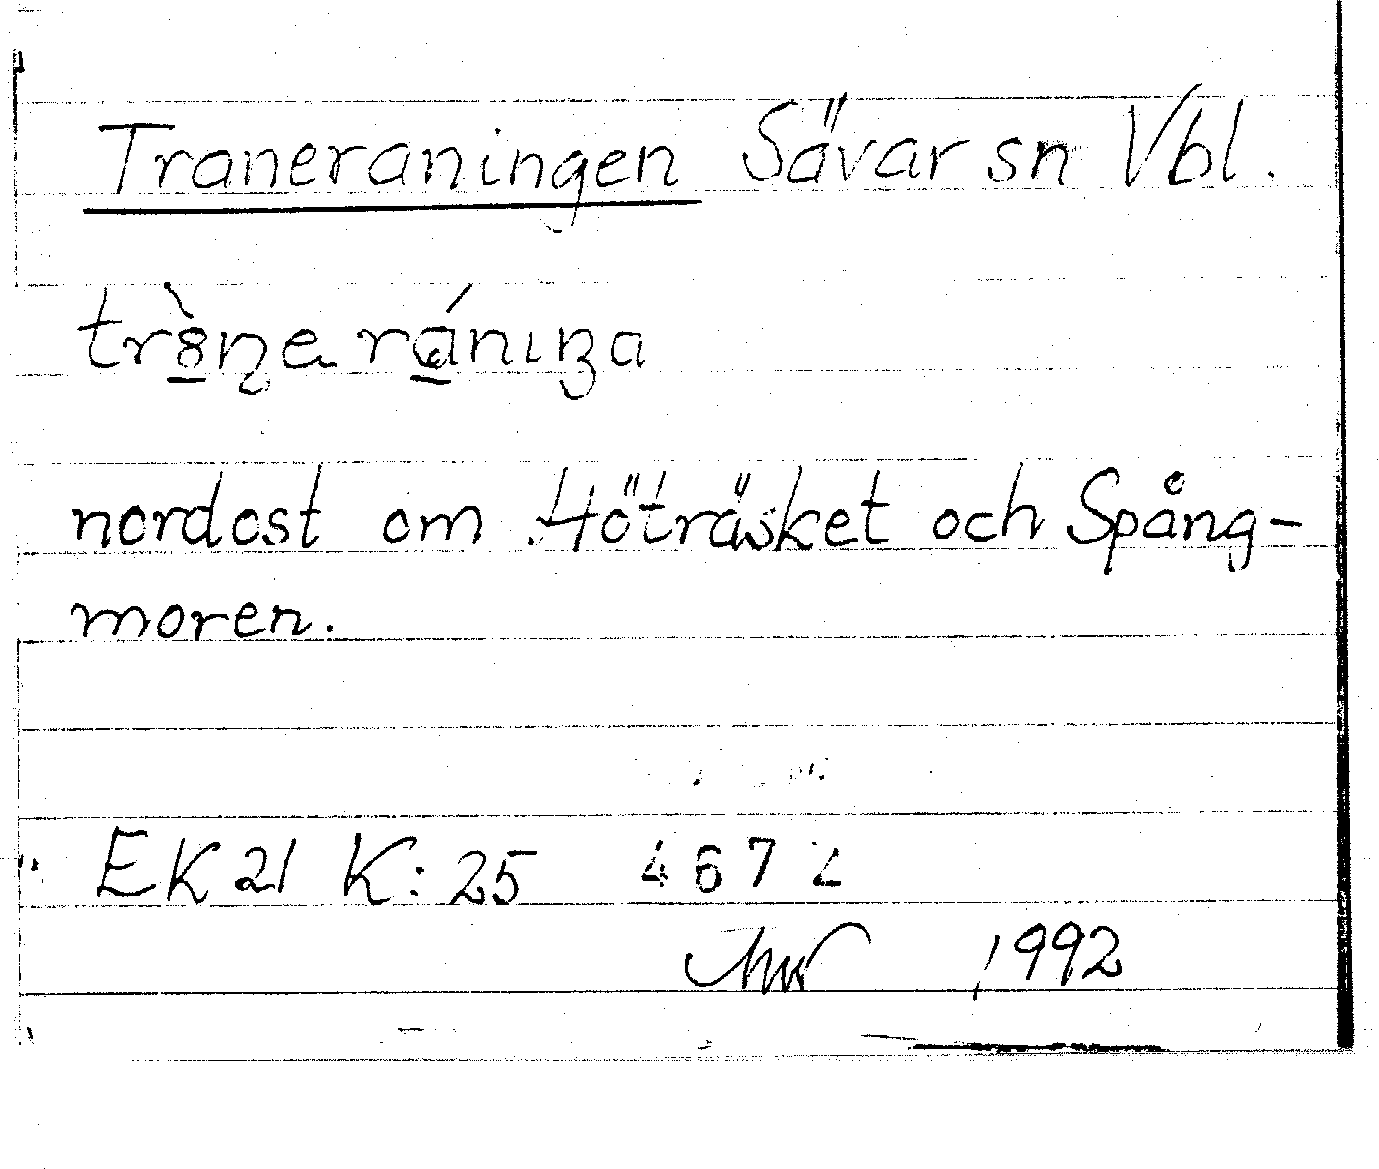 Traneraningen Sävar sn Vbl.
nordost om Höträsket och Spång-
moren.
EK 21 K: 25 4672
1992